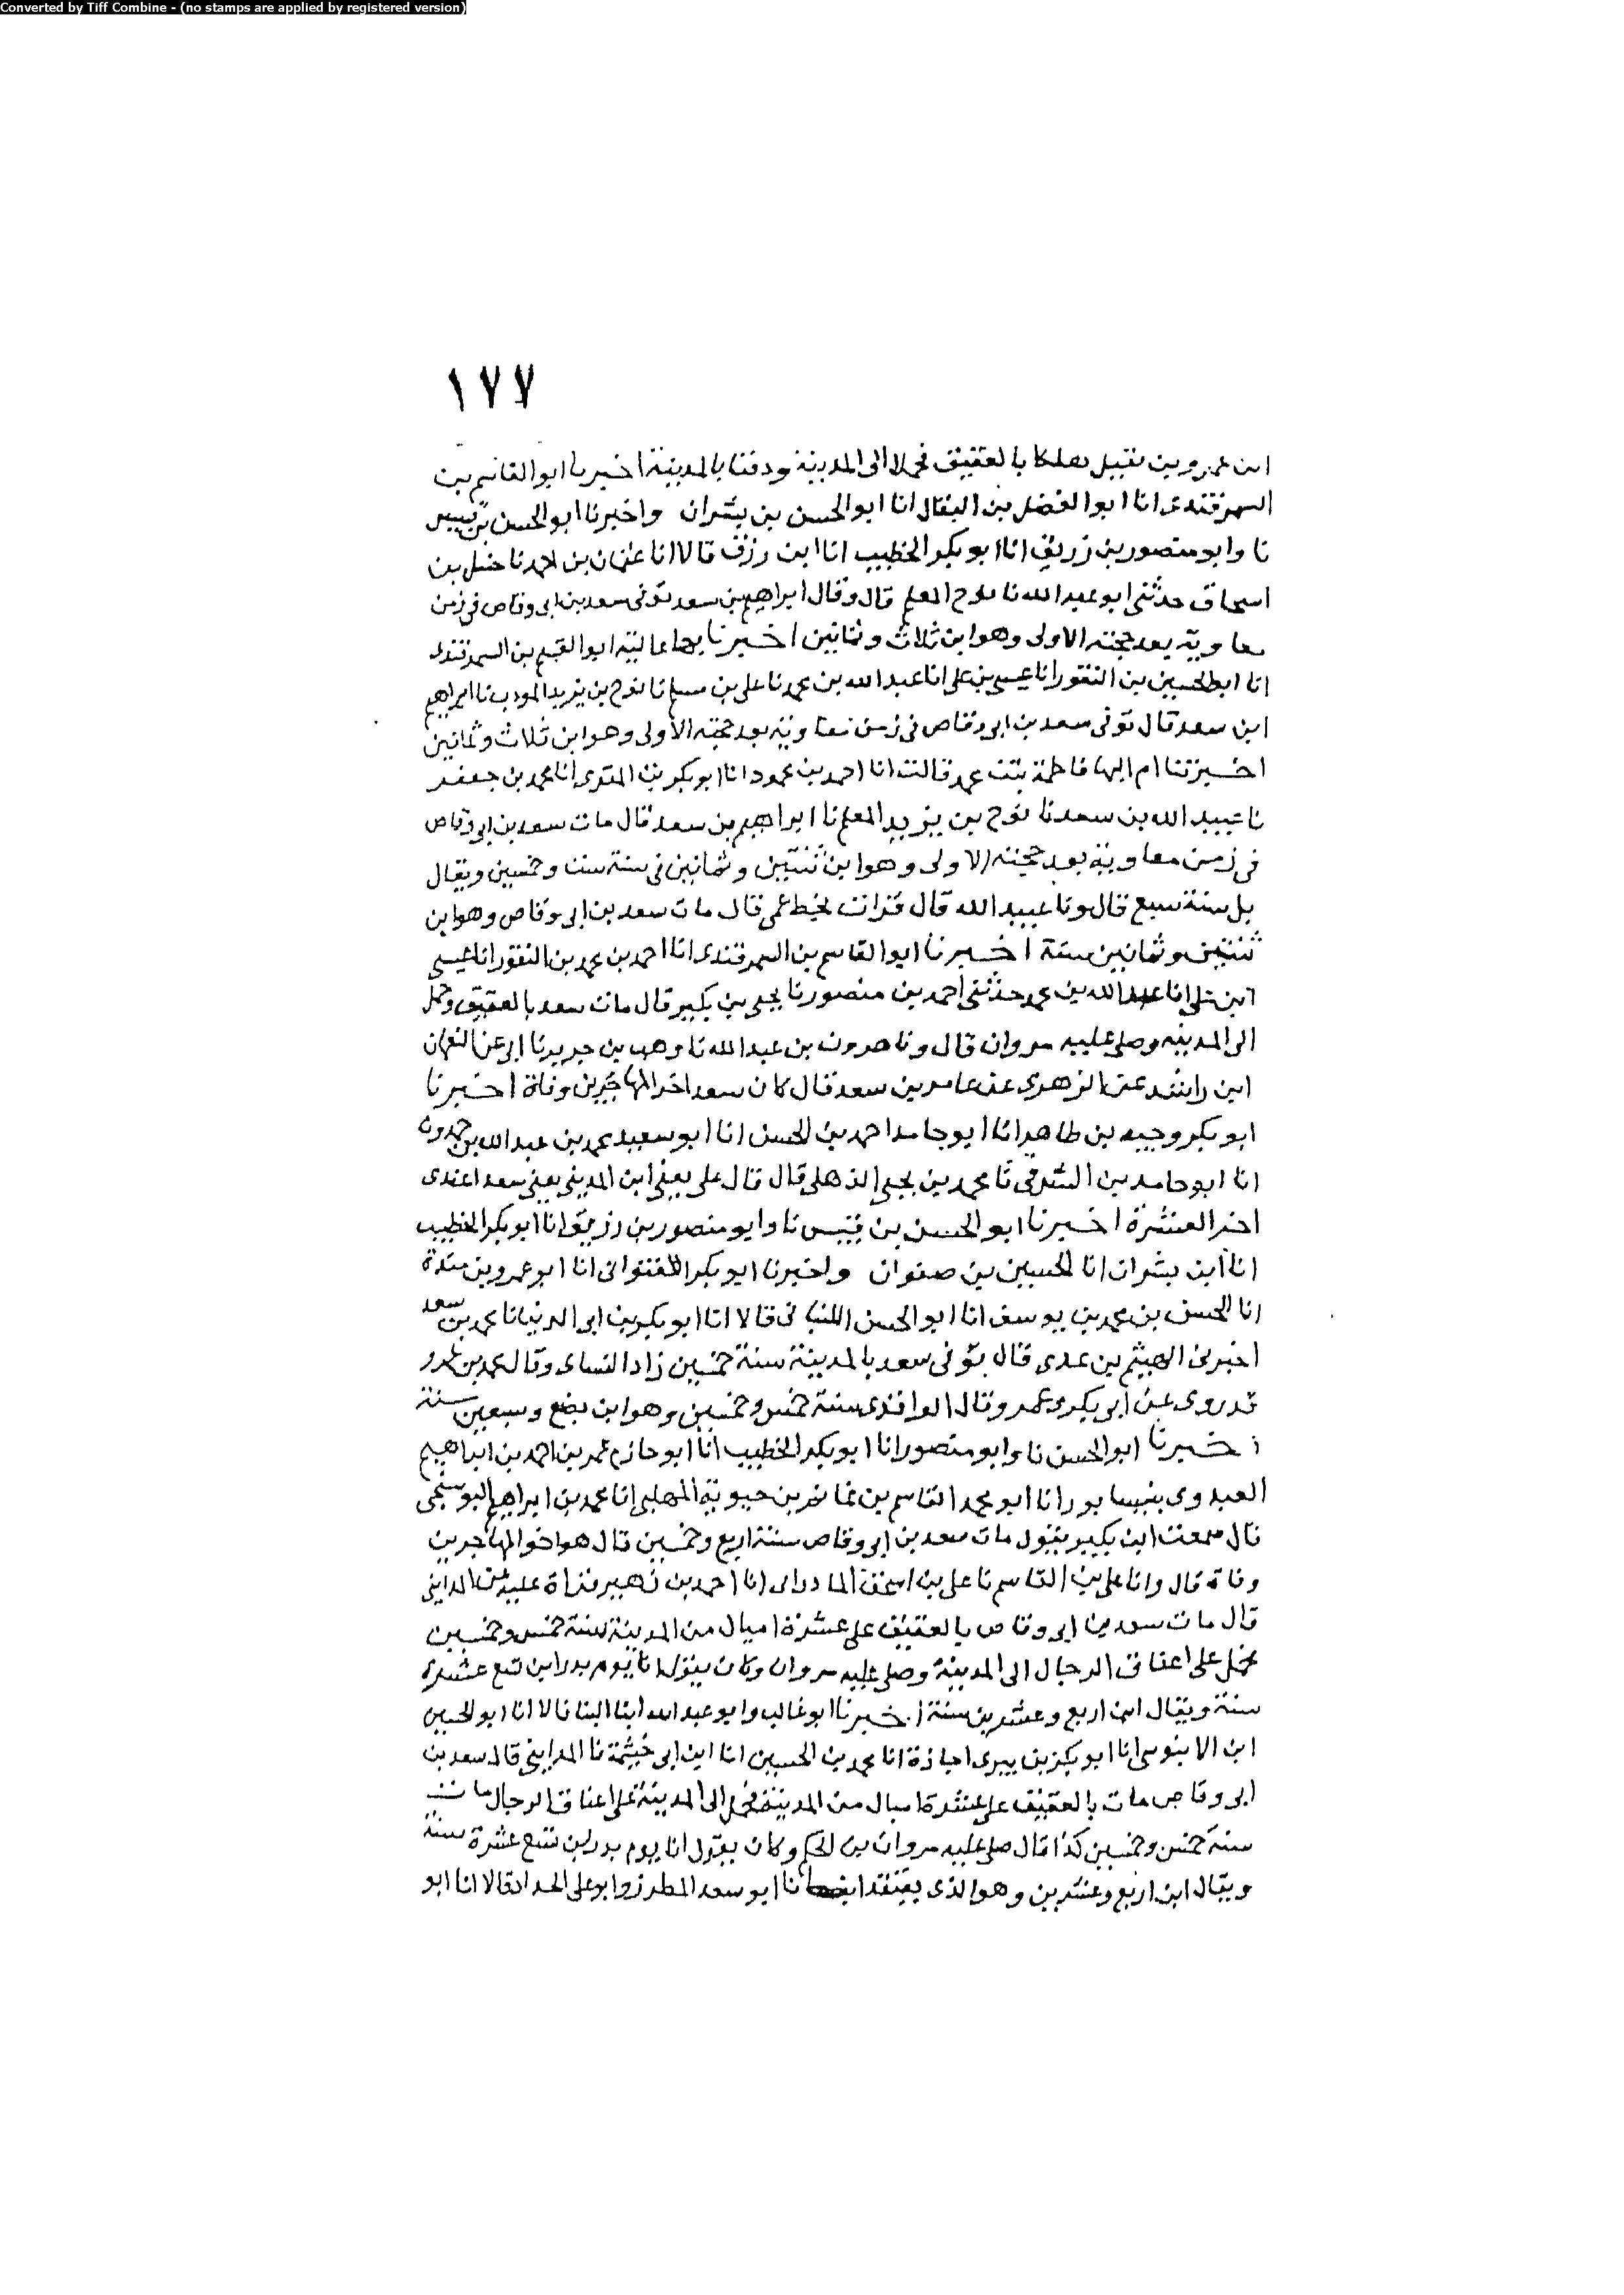 Converted by Tiff Combine - (no stamps are applied by registered version)
١٧٧
ابن عمرو بن نفيل هلكا بالعقيق فحملا الى المدينة ودفنا بالمدينة اخبرنا ابو القاسم بن
السمرقندى انا ابو الفضل بن البقال انا ابو الحسن بن بشران واخبرنا ابو الحسن بن قبيس
نا وابو منصور بن زريق انا ابو بكر الخطيب انا ابن رزق قالا انا عثمان بن احمد نا حنبل بن
اسحاق حدثنى ابو عبد الله نا نوح المعلم قال وقال ابراهيم بن سعد توفى سعد بن ابى وقاص فى زمن
معاوية بعد حجته الاولى وهو ابن ثلاث وثمانين اخبرنا بها عالية ابو القسم بن السمرقندى
انا ابو الحسين بن النقور انا عيسى بن على انا عبد الله بن محمد نا على بن مسلم نا نوح بن يزيد المودب نا ابراهيم
ابن سعد قال توفى سعد بن ابى وقاص فى زمن معاوية بعد حجته الاولى وهو ابن ثلاث وثمانين
اخبرتنا ام البها فاطمة بنت محمد قالت انا احمد بن محمود انا ابو بكر بن المقرى انا محمد بن جعفر
نا عبيد الله بن سعد نا نوح بن يزيد المعلم نا ابراهيم بن سعد قال مات سعد بن ابى وقاص
فى زمن معاوية بعد حجته الاولى وهو ابن ثنتين وثمانين فى سنة ست وخمسين ويقال
بل سنة سبع قال ونا عبيد الله قال قرات بخط عمى قال مات سعد بن ابى وقاص وهو ابن
ثنتين وثمانين سنة اخبرنا ابو القاسم بن السمرقندى انا احمد بن محمد بن النقور انا عيسى
ابن على انا عبد الله بن محمد حدثنى احمد بن منصور نا يحيى بن بكير قال مات سعد بالعقيق وحمل
الى المدينة وصلى عليه مروان قال ونا هرون بن عبد الله نا وهب بن جرير نا ابى عن النعمان
ابن راشد عن الزهرى عن عامر بن سعد قال كان سعد اخر المهاجرين وفاة اخبرنا
ابو بكر وجيه بن طاهر انا ابو حامد احمد بن الحسن انا ابو سعيد محمد بن عبد الله بن حمدون
انا ابو حامد بن الشرقى نا محمد بن يحيى الذهلى قال قال على يعنى ابن المدينى يعنى سعدا عندى
اخر العشرة اخبرنا ابو الحسن بن قبيس نا وابو منصور بن زريق انا ابو بكر الخطيب
انا ابن بشران انا الحسين بن صفوان واخبرنا ابو بكر اللفتوانى انا ابو عمرو بن مندة
انا الحسن بن محمد بن يوسف انا ابو الحسن اللنبانى قالا انا ابو بكر بن ابى الدنيا نا محمد بن سعد
اخبرنى الهيثم بن عدى قال توفى سعد بالمدينة سنة خمسين زاد النساى وقال محمد بن عمرو
قد روى عن ابى بكر وعمر وقال الواقدى سنة خمس وخمسين وهو ابن بضع وسبعين سنة
اخبرنا ابو الحسن نا وابو منصور انا ابو بكر الخطيب انا ابو حازم عمر بن احمد بن ابراهيم
العبدوى بنيسابور انا ابو محمد القاسم بن غانم بن حيوية المهلبى انا محمد بن ابراهيم البوسنجى
قال سمعت ابن بكير يقول مات سعد بن ابى وقاص سنة اربع وخمسين قال هو اخر المهاجرين
وفاة قال وانا على بن القاسم نا على بن اسحق المادراى انا احمد بن زهير قراة عليه عن المداينى
قال مات سعد بن ابى وقاص بالعقيق على عشرة اميال من المدينة سنة خمس وخمسين
فحمل على اعناق الرجال الى المدينة وصلى عليه مروان وكان يقول انا يوم بدر ابن تسع عشرة
سنة ويقال ابن اربع وعشرين سنة اخبرنا ابو غالب وابو عبد الله ابنا البنا قالا انا ابو الحسين
ابن الابنوسى انا ابو بكر بن بيرى اجازة انا محمد بن الحسين انا ابن ابى خيثمة نا المداينى قال سعد بن
ابى وقاص مات بالعقيق على عشرة اميال من المدينة فحمل الى المدينة على اعناق الرجال مات
سنة خمس وخمسين كذا قال صلى عليه مروان بن الحكم وكان يقول انا يوم بدر ابن تسع عشرة سنة
ويقال ابن اربع وعشرين وهو الذى انا ابو سعد المطرز وابو على الحداد قالا انا ابو